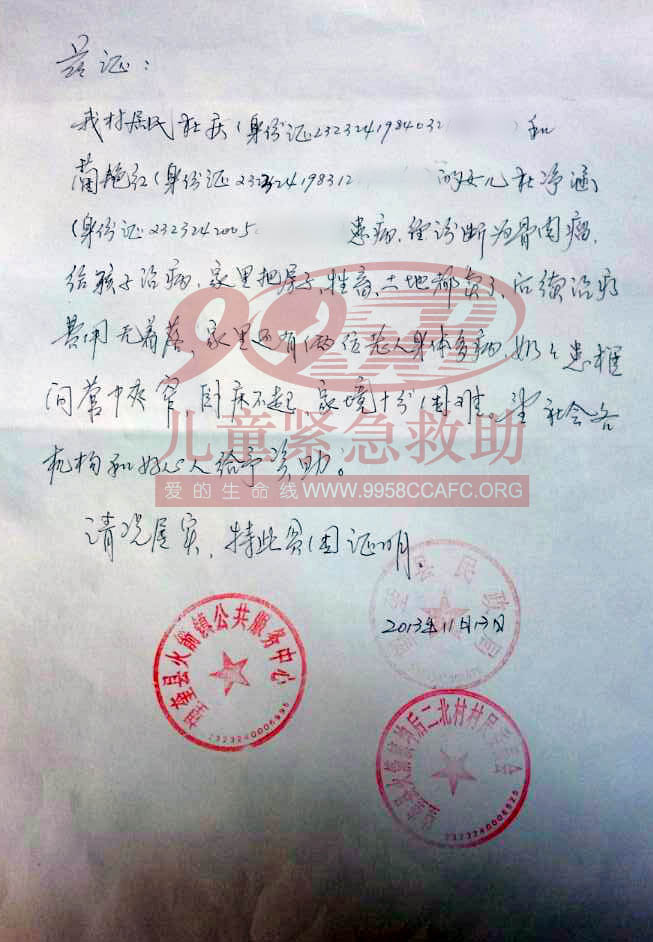 兹证:
我村居民杜庆(身份证2323241984032 和
蔺艳红(身份证232324198312 的女儿杜净涵
(身份证2323242005 患病,经诊断为骨肉瘤,
给孩子治病,家里把房子、牲畜、土地都卖了,后续治疗
费用无着落,家里还有俩位老人身体多病,奶奶患椎
间管中央窄 卧床不起,家境十分困难。望社会各
机构和好心人给予资助。
情况属实,特此贫困证明。
2013年11月13日
9958
儿童紧急救助
爱的生命线WWW.9958CCAFC.ORG
望奎县民政局
望奎县火箭镇公共服务中心
2323240006995
望奎县火箭镇 后二北村村民委员会